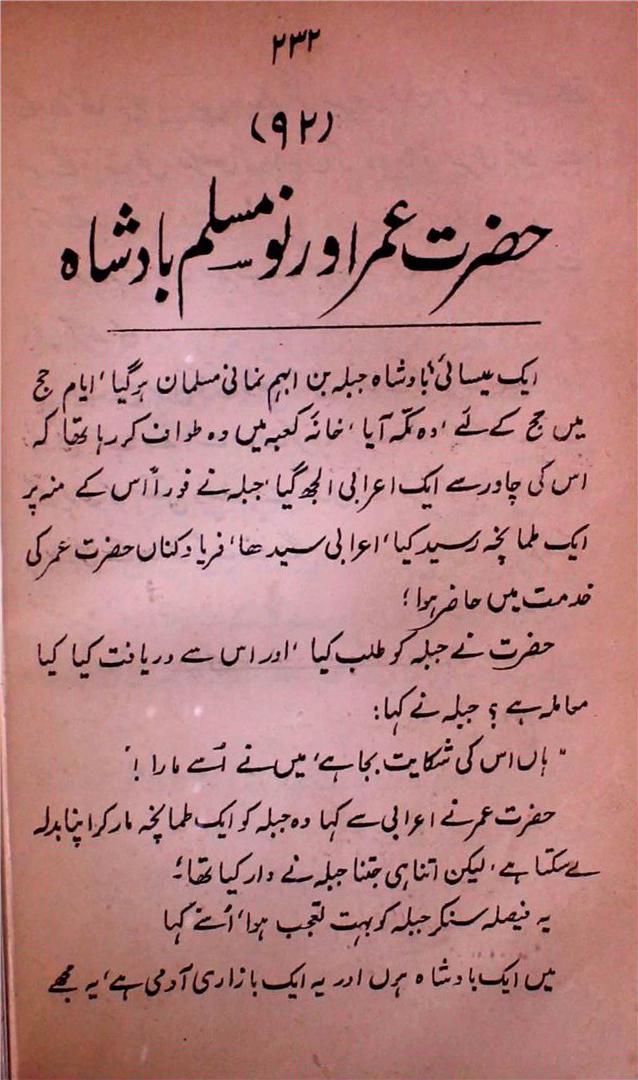 ۲۳۲
(۹۲)
حضرت عمر اور نو مسلم بادشاہ
ایک عیسائی بادشاہ جبلہ بن ابہم نمانی مسلمان ہو گیا، ایام حج
میں حج کے لئے، وہ مکّہ آیا، خانۂ کعبہ میں وہ طواف کر رہا تھا کہ
اس کی چادر سے ایک اعرابی الجھ گیا، جبلہ نے فوراً اس کے منہ پر
ایک طماپخہ رسید کیا، اعرابی سیدھا، فریاد کناں حضرت عمر کی
خدمت میں حاضر ہوا؛
حضرت نے جبلہ کو طلب کیا، اور اس سے دریافت کیا کیا
معاملہ ہے؟ جبلہ نے کہا:
" ہاں اس کی شکایت بجا ہے، میں نے اُسے مارا!"
حضرت عمر نے اعرابی سے کہا وہ جبلہ کو ایک طماپخہ مار کر اپنا بدلہ
لے سکتا ہے، لیکن اتنا ہی جتنا جبلہ نے وار کیا تھا؛
یہ فیصلہ سنکر جبلہ کو بہت تعجب ہوا، اُسنے کہا
میں ایک بادشاہ ہوں اور یہ ایک بازاری آدمی ہے، یہ مجھے